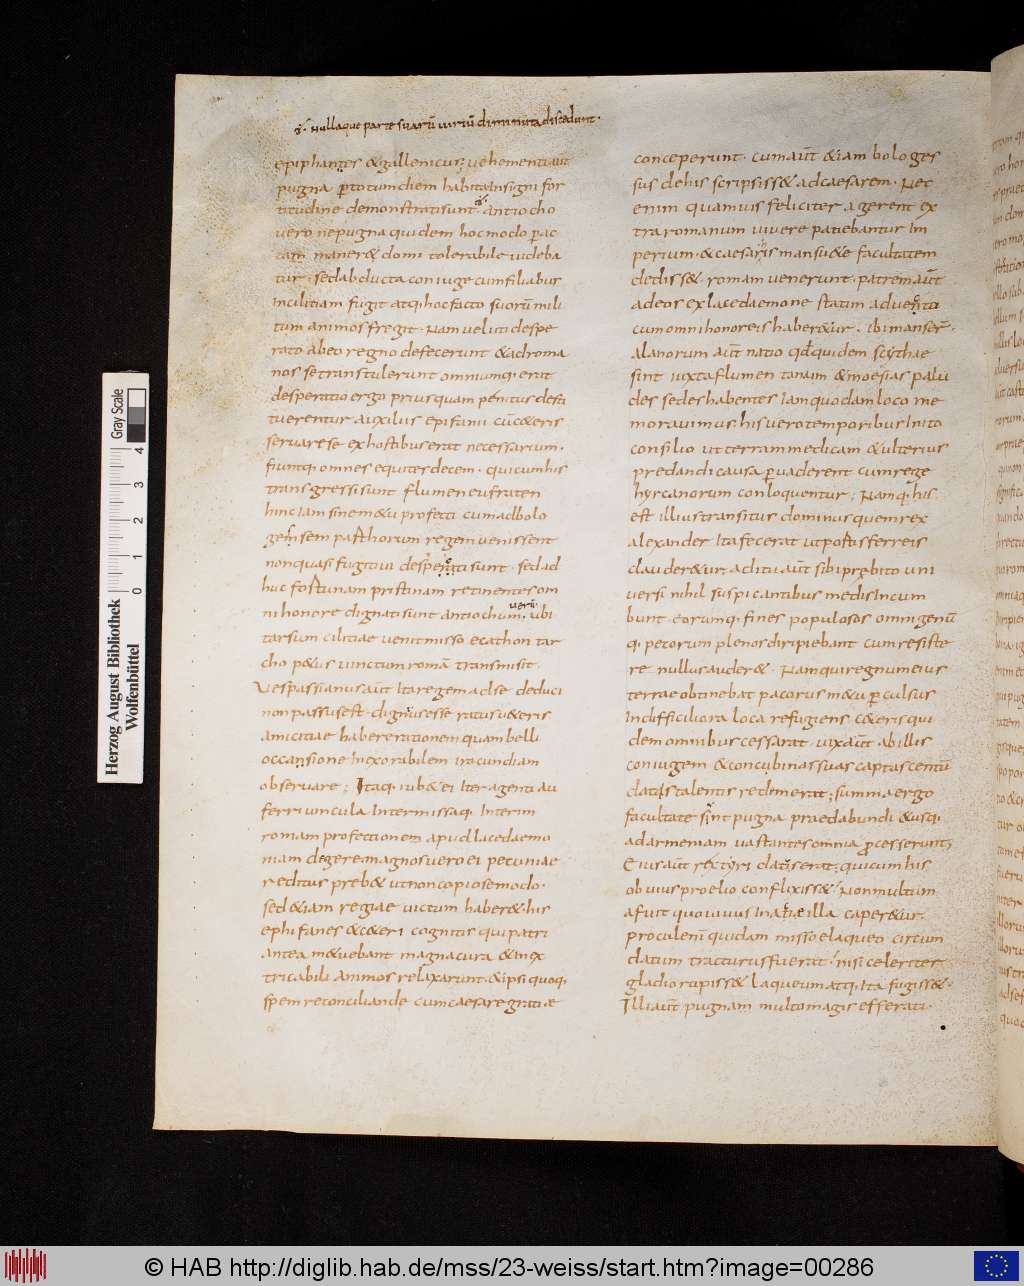 Nullaque parte suarū uiriū diminuta discedunt·
epiphanes & gallenicus uehementi aut
pugna p totum diem habita Insigni for
titudine demonstrati sunt· antiocho
uero ne pugna quidem hoc modo perac
tam maner& domi tolerabile uideba
tur· sed abducta coniuge cum filiabus
In ciliciam fugit atq; hoc facto suorū mili
tum animos fregit· Nam velut despe
rato ab eo regno defecerunt & ad roma
nos se transtulerunt omniumq; erat
desperatio ergo prius quam penitus desti
tuerentur auxiliis epifanii cū c&eris
servare se ex hostibus erat necessarium·
fiuntq; omnes equites decem· qui cum his
transgressi sunt flumen eufraten
hinc Iam sine m&u profecti cum ad bolo
gensem parthorum regem uenissent
non quasi fugitiui despecti sunt· sed ad
huc fortunam pristinam retinentes om
ni honore dignati sunt antiochum· uero ubi
tarsum ciliciae uenit misso ecathontar
cho p&us uinctum romā transmisit·
Vespassianus aūt Ita regem ad se deduci
non passus est· dignius esse ratus u&eris
amicitiae habere rationem quam belli
occansione Inexorabilem iracundiam
observare; Itaq; iub& ei Iter agenti au
ferri uincula Intermissaq; Interim
romam profectionem apud lacedaemo
niam degere· magnos uero ei pecuniae
reditus preb& ut non copiose modo·
sed &iam regiae uictum haber&· his
ephifanes & c&eri cognitis qui patri
antea m&uebant magna cura & inex
tricabili animos relaxarunt· & ipsi quoq;
spem reconciliandae cum caesare gratiae
conceperunt· cum aūt &iam bologes
sus de his scripsiss& ad caesarem· Nec
enim quamuis feliciter agerent ex
tra romanum uiuere patiebantur Im
perium· & caesaris mansu&e facultatem
dediss&· romam uenerunt· patrem aūt
ad eos ex lacedaemone statim aduecti
cum omni honore Is haber&ur· ibi manser̄·
Alanorum aūt natio qđ quidem scythae
sint iuxta flumen tanain & moesias palu
des sedes habentes Iam quodam loco me
moravimus his uero temporibus Inito
consilio ut terram medicam & ulterius
predandi causa p uaderent cum rege
hyrcanorum conloquentur; Namq; his
est illius transitus dominus quem rex
alexander Ita fecerat ut portis ferreis
clauder&ur aditu aūt sibi prębito uni
uersi nihil suspicantibus medis Incum
bunt· eorumq; fines populosos omni genū
q; pecorum plenos diripiebant cum resiste
re nullus auder&· Nam qui regnum eius
terrae obtinebat pacorus m&u pculsus
In difficiliora loca refugiens c&eris qui
dem omnibus cessarat uix aūt ab illis
coniugem & concubinas suas captas centū
datis talentis redemerat; summa ergo
facultate sint pugna praedabundi & usq;
ad armeniam uastantes omnia pcesserunt;
Eius aūt rex tyridatis erat; qui cum his
obuius proelio conflixiss& Non multum
afuit quo uiuus In acie illa caper&ur·
Procul enī quidam misso elaqueo circum
datum tracturus fuerat· nisi celeriter
gladio rupiss& laqueum atq; Ita fugiss&·
Illi aūt pugnam multo magis efferati·
Herzog August Bibliothek
Wolfenbüttel
0 1 2 3 4
Gray Scale
© HAB http://diglib.hab.de/mss/23-weiss/start.htm?image=00286